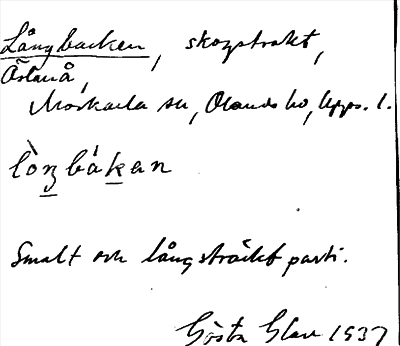 Långbacken, skogstrakt,
Åstanå,
Morkarla sn, Olands hd, Upps. l.
lòŋbákan
Smalt och långsträckt parti.
Gösta Glas 1937